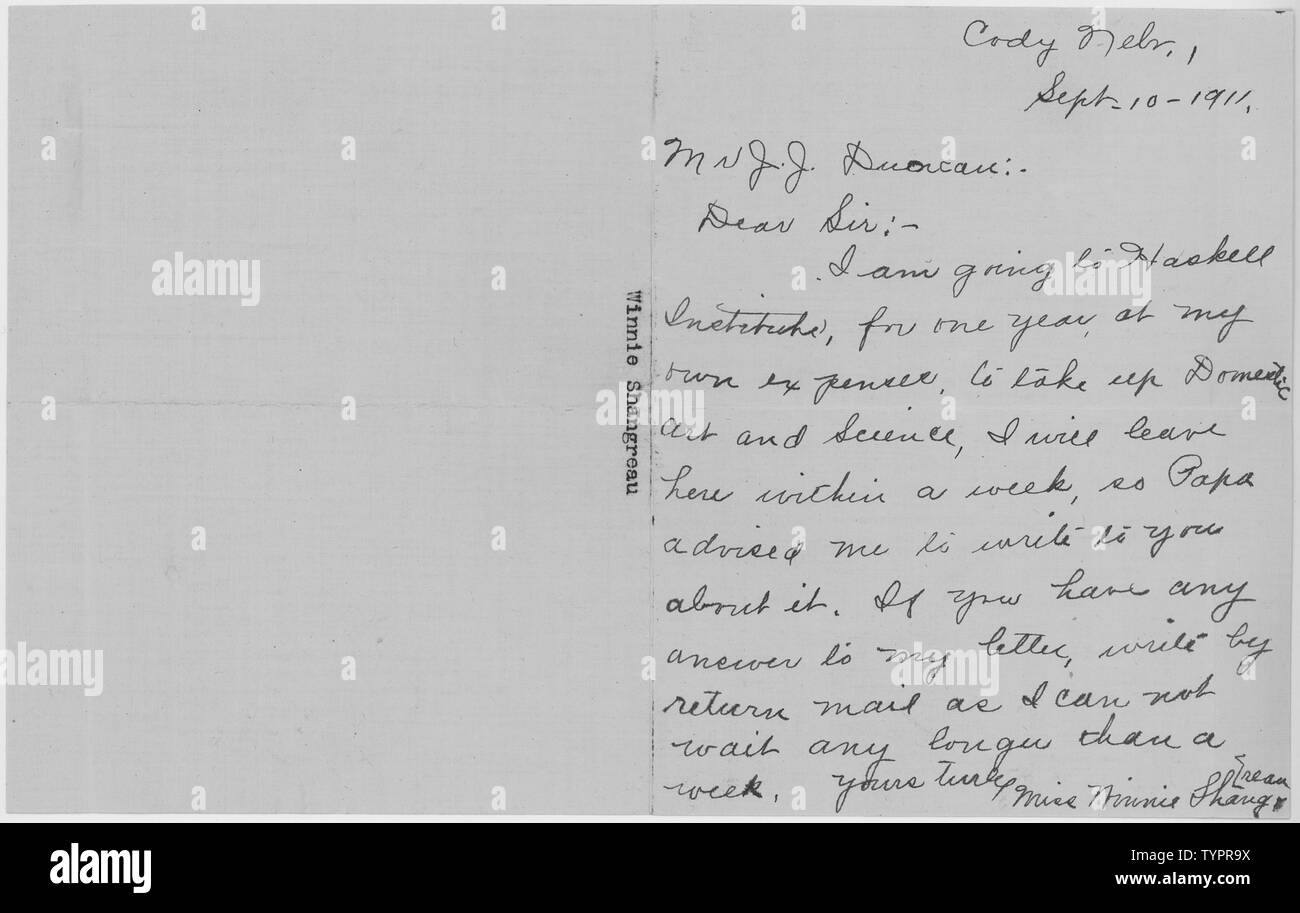 Cody Nebr.,
Sept-10-1911.
Mr J.J. Duncan:-
Dear Sir:-
I am going to Haskell
Institute, for one year, at my
own expenses, to take up Domestic
Art and Science, I will leave
here within a week, so Papa
advised me to write to you
about it. If you have any
answer to my letter, write by
return mail as I can not
wait any longer than a
week. yours turly
Miss Winnie Shangreau
Winnie Shangreau
a
alamy
alamy
Image ID: TYPR9X
www.alamy.com